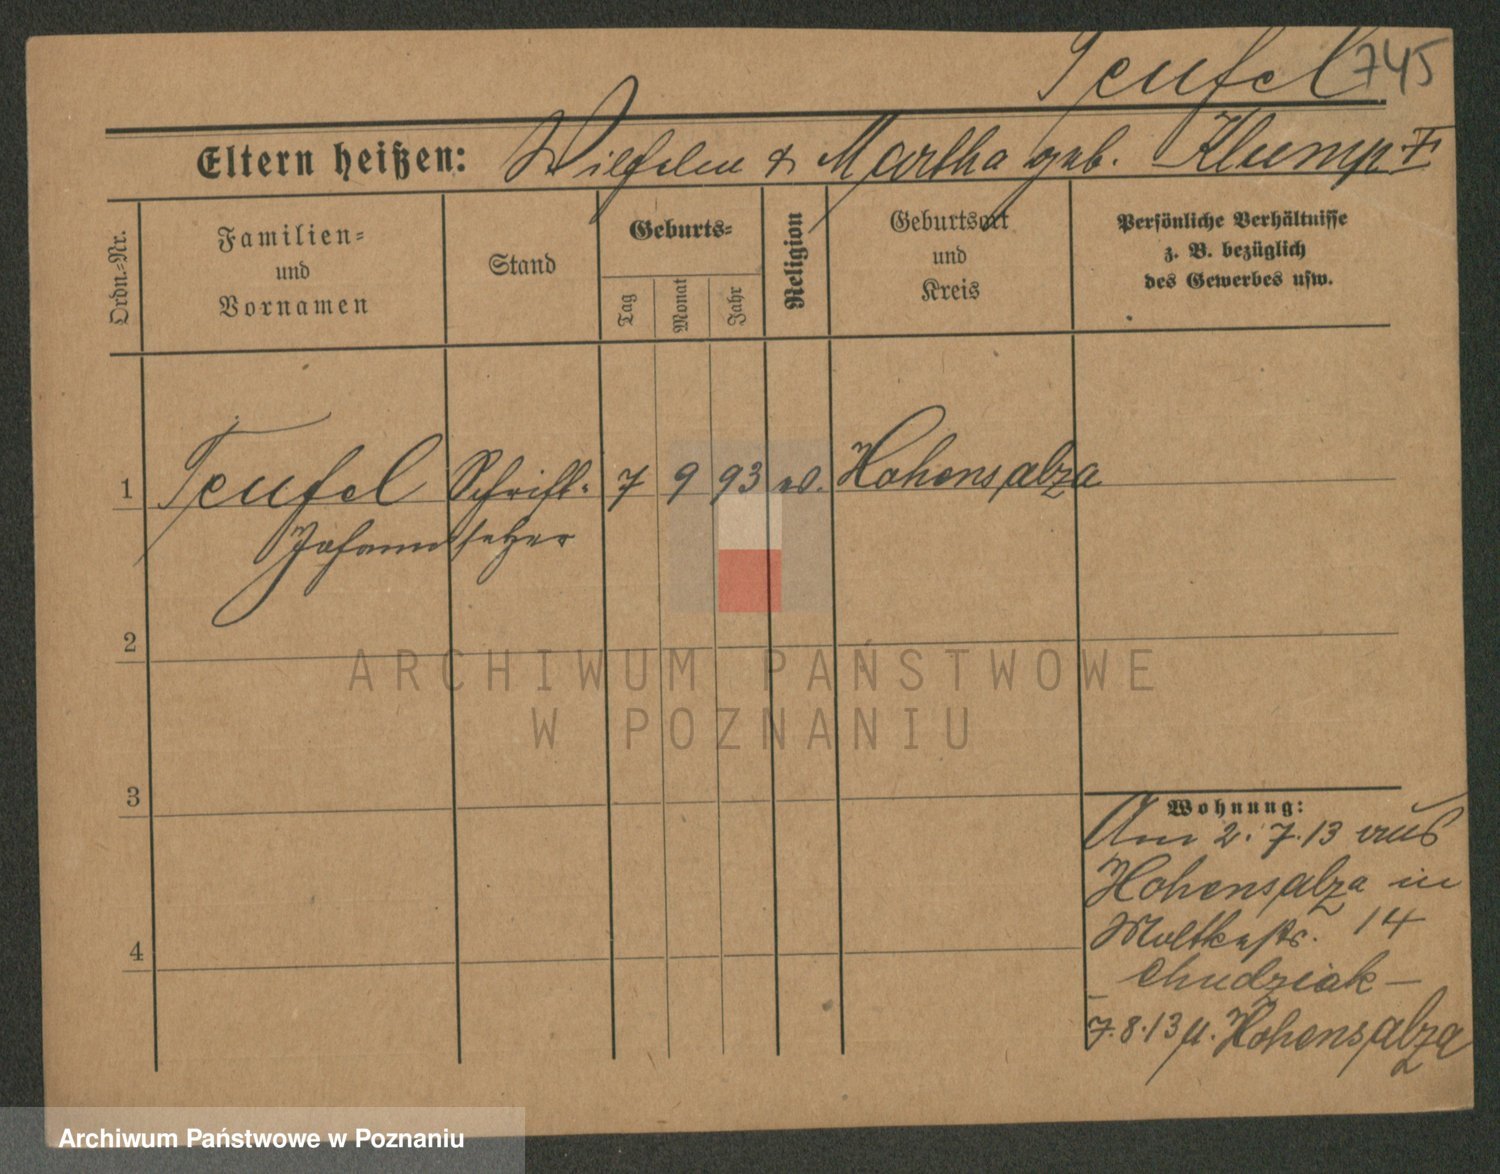 Teufel 745
Eltern heißen: Wilhelm & Martha geb. Klump
Ordn.=Nr.
Familien=
und
Vornamen
Stand
Geburts=
Tag
Monat
Jahr
Religion
Geburtsort
und
Kreis
Persönliche Verhältnisse
z. B. bezüglich
des Gewerbes usw.
1 Teufel Schrift= 7 9 93 Hohensalza
Johann setzer
2
3
4
Wohnung:
Am 2. 7. 13 aus
Hohensalza in
Moltkestr. 14
Chudziak —
7. 8. 13 n. Hohensalza
ARCHIWUM PAŃSTWOWE
W POZNANIU
Archiwum Państwowe w Poznaniu